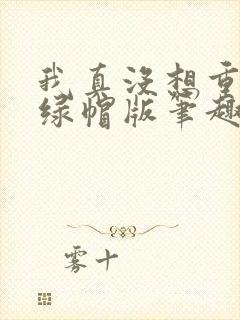 我真没想重
绿帽版笔趣
雾十